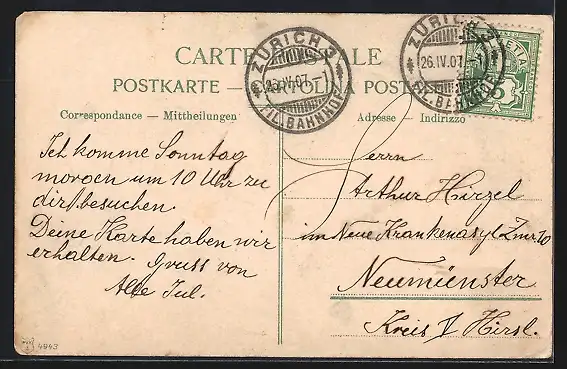 CARTE POSTALE
POSTKARTE — CARTOLINA POSTALE
Correspondance — Mitteilungen
Adresse — Indirizzo
ZÜRICH 3
26.IV.07.-7
FIL. BAHNHOF
ZÜRICH 3
26.IV.07.-7
FIL. BAHNHOF
HELVETIA
5
Ich komme Sonntag
morgen um 10 Uhr zu
dir besuchen.
Deine Karte haben wir
erhalten. Gruss von
Alle Jul.
Herrn
Arthur Hirzel
im Neue Krankenasyl Zmr. 10
Neumünster
Kreis V Hirsl.
4943